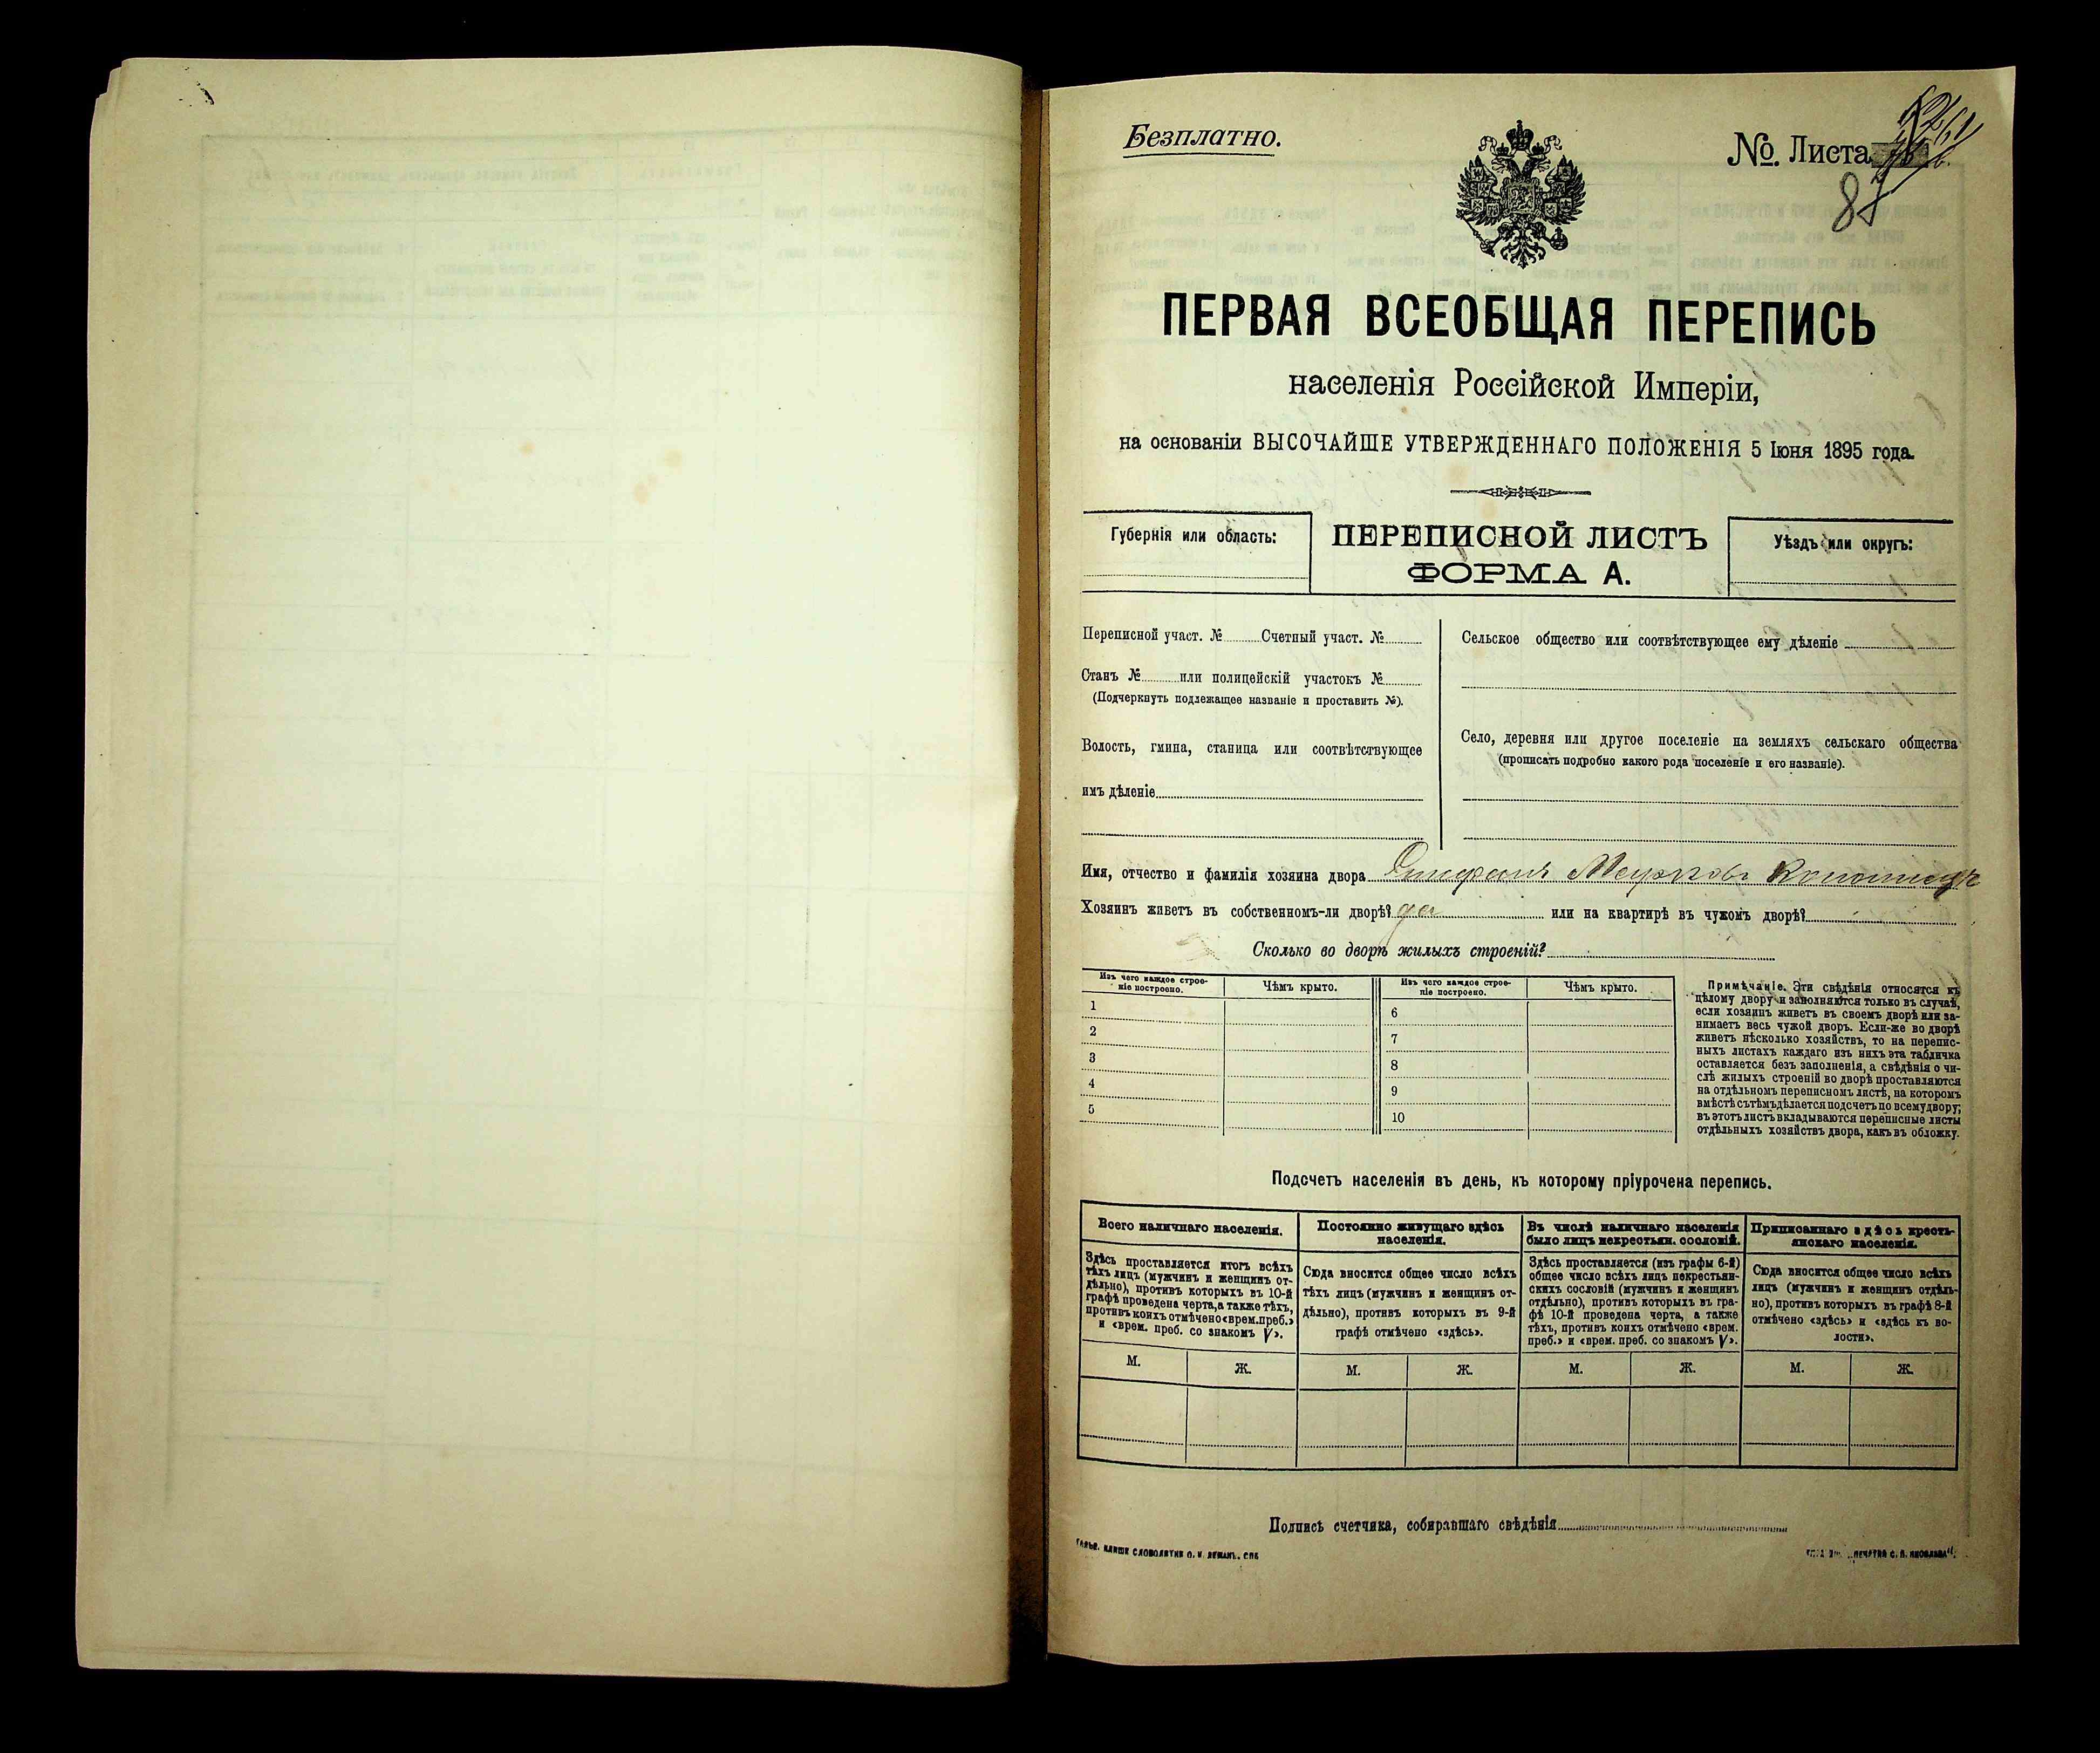 Безплатно.
№. Листа
87
ПЕРВАЯ ВСЕОБЩАЯ ПЕРЕПИСЬ
населенія Россійской Имперіи,
на основаніи ВЫСОЧАЙШЕ УТВЕРЖДЕННАГО ПОЛОЖЕНІЯ 5 Іюня 1895 года.
Губернія или область:
ПЕРЕПИСНОЙ ЛИСТЪ
ФОРМА А.
Уѣздъ или округъ:
Переписной участ. № Счетный участ. №
Станъ № или полицейскій участокъ №
(Подчеркнуть подлежащее названіе и проставить №).
Волость, гмина, станица или соотвѣтствующее
имъ дѣленіе
Сельское общество или соотвѣтствующее ему дѣленіе
Село, деревня или другое поселеніе на земляхъ сельскаго общества
(прописать подробно какого рода поселеніе и его названіе).
Имя, отчество и фамилія хозяина двора
Хозяинъ живетъ въ собственномъ-ли дворѣ? да или на квартирѣ въ чужомъ дворѣ?
Сколько во дворѣ жилыхъ строеній?
Изъ чего каждое строе-
ніе построено.
Чѣмъ крыто.
Изъ чего каждое строе-
ніе построено.
Чѣмъ крыто.
1
2
3
4
5
6
7
8
9
10
Примѣчаніе. Эти свѣдѣнія относятся къ
цѣлому двору и заполняются только въ случаѣ,
если хозяинъ живетъ въ своемъ дворѣ или за-
нимаетъ весь чужой дворъ. Если-же во дворѣ
живетъ нѣсколько хозяйствъ, то на перепис-
ныхъ листахъ каждаго изъ нихъ эта табличка
оставляется безъ заполненія, а свѣдѣнія о чи-
слѣ жилыхъ строеній во дворѣ проставляются
на отдѣльномъ переписномъ листѣ, на которомъ
вмѣстѣ съ тѣмъ дѣлается подсчетъ по всему двору;
въ этотъ листъ вкладываются переписные листы
отдѣльныхъ хозяйствъ двора, какъ въ обложку.
Подсчетъ населенія въ день, къ которому пріурочена перепись.
Всего наличнаго населенія.
Здѣсь проставляется итогъ всѣхъ
тѣхъ лицъ (мужчинъ и женщинъ от-
дѣльно), противъ которыхъ въ 10-й
графѣ проведена черта, а также тѣхъ,
противъ коихъ отмѣчено «врем. преб.»
и «врем. преб. со знакомъ V».
М. Ж.
Постоянно живущаго здѣсь
населенія.
Сюда вносится общее число всѣхъ
тѣхъ лицъ (мужчинъ и женщинъ от-
дѣльно), противъ которыхъ въ 9-й
графѣ отмѣчено «здѣсь».
М. Ж.
Въ числѣ наличнаго населенія
было лицъ некрестьян. сословій.
Здѣсь проставляется (изъ графы 6-й)
общее число всѣхъ лицъ некрестьян-
скихъ сословій (мужчинъ и женщинъ
отдѣльно), противъ которыхъ въ гра-
фѣ 10-й проведена черта, а также
тѣхъ, противъ коихъ отмѣчено «врем.
преб.» и «врем. преб. со знакомъ V».
М. Ж.
Приписаннаго здѣсь кресть-
янскаго населенія.
Сюда вносится общее число всѣхъ
лицъ (мужчинъ и женщинъ отдѣль-
но), противъ которыхъ въ графѣ 8-й
отмѣчено «здѣсь» и «здѣсь къ во-
лости».
М. Ж.
Подпись счетчика, собиравшаго свѣдѣнія